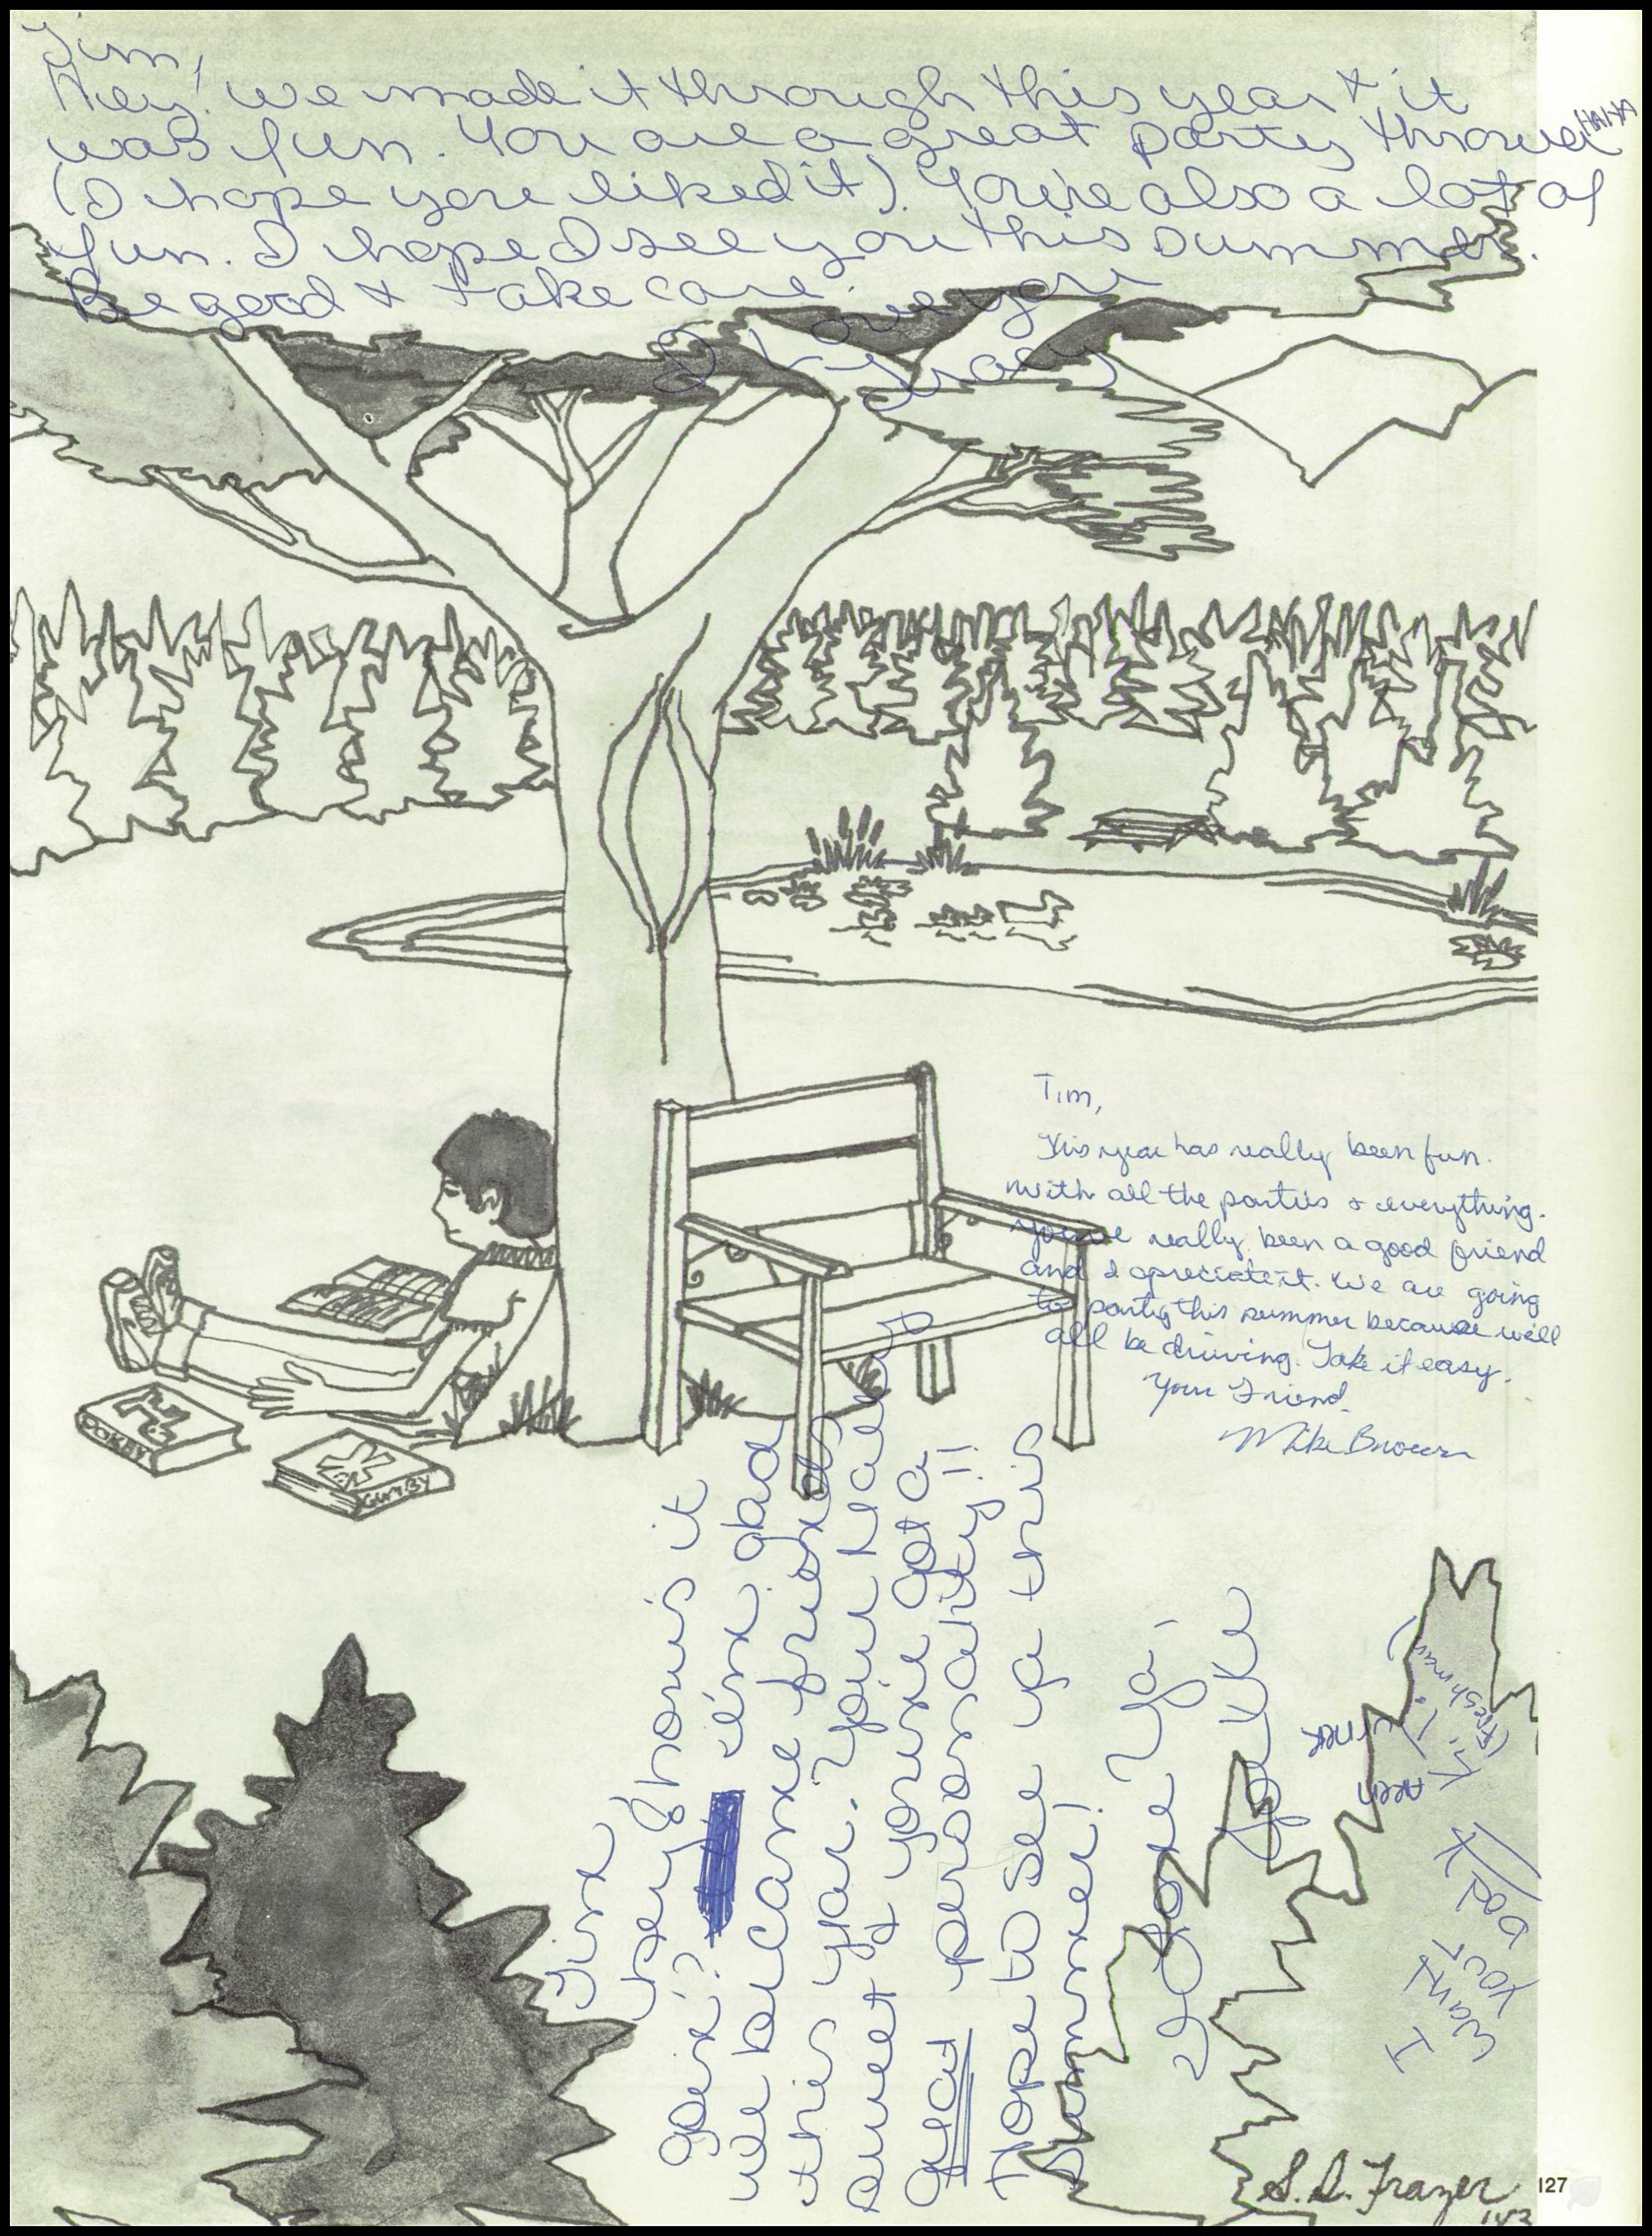 Tim,
Hey! we made it through this year & it
was fun. You are a great party thrower HA!HA
(I hope you liked it). You're also a lot of
fun. I hope I see you this summer.
Be good & take care.
I Love you
Tracy
Tim,
This year has really been fun.
with all the parties & everything.
you've really been a good friend
and I apreciate it. We are going
to party this summer because we'll
all be driving. Take it easy.
Your Friend.
Mike Brown
POKEY
GUMBY
Tim
hey! how is it
goin? im glad
we became friends
this year. Your really
sweet & youve got a
great personality!!
Hope to see ya this
summer!
Love Ya,
I
want
your
bod
(Freshman)
S. D. Frazer
127